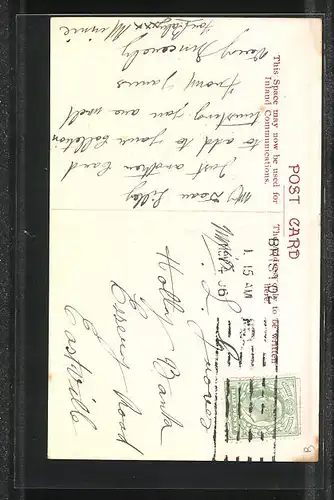 POST CARD
This Space may now be used for
Inland Communications.
The Address only to be written
here.
BRISTOL
1. 15 AM
06
My Dear Lilly
Just another Card
to add to your Collection
trusting you are well
from Yours
Very Sincerely
Minnie
Miss L.
Holly Bank
Road
Eastville